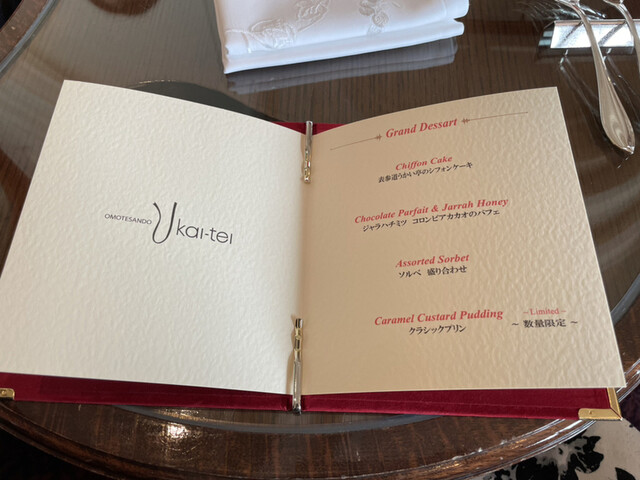 OMOTESANDO
Ukai-tei
Grand Dessart
Chiffon Cake
表参道うかい亭のシフォンケーキ
Chocolate Parfait & Jarrah Honey
ジャラハチミツ コロンビアカカオのパフェ
Assorted Sorbet
ソルベ 盛り合わせ
Caramel Custard Pudding
クラシックプリン
~Limited~
~ 数量限定 ~